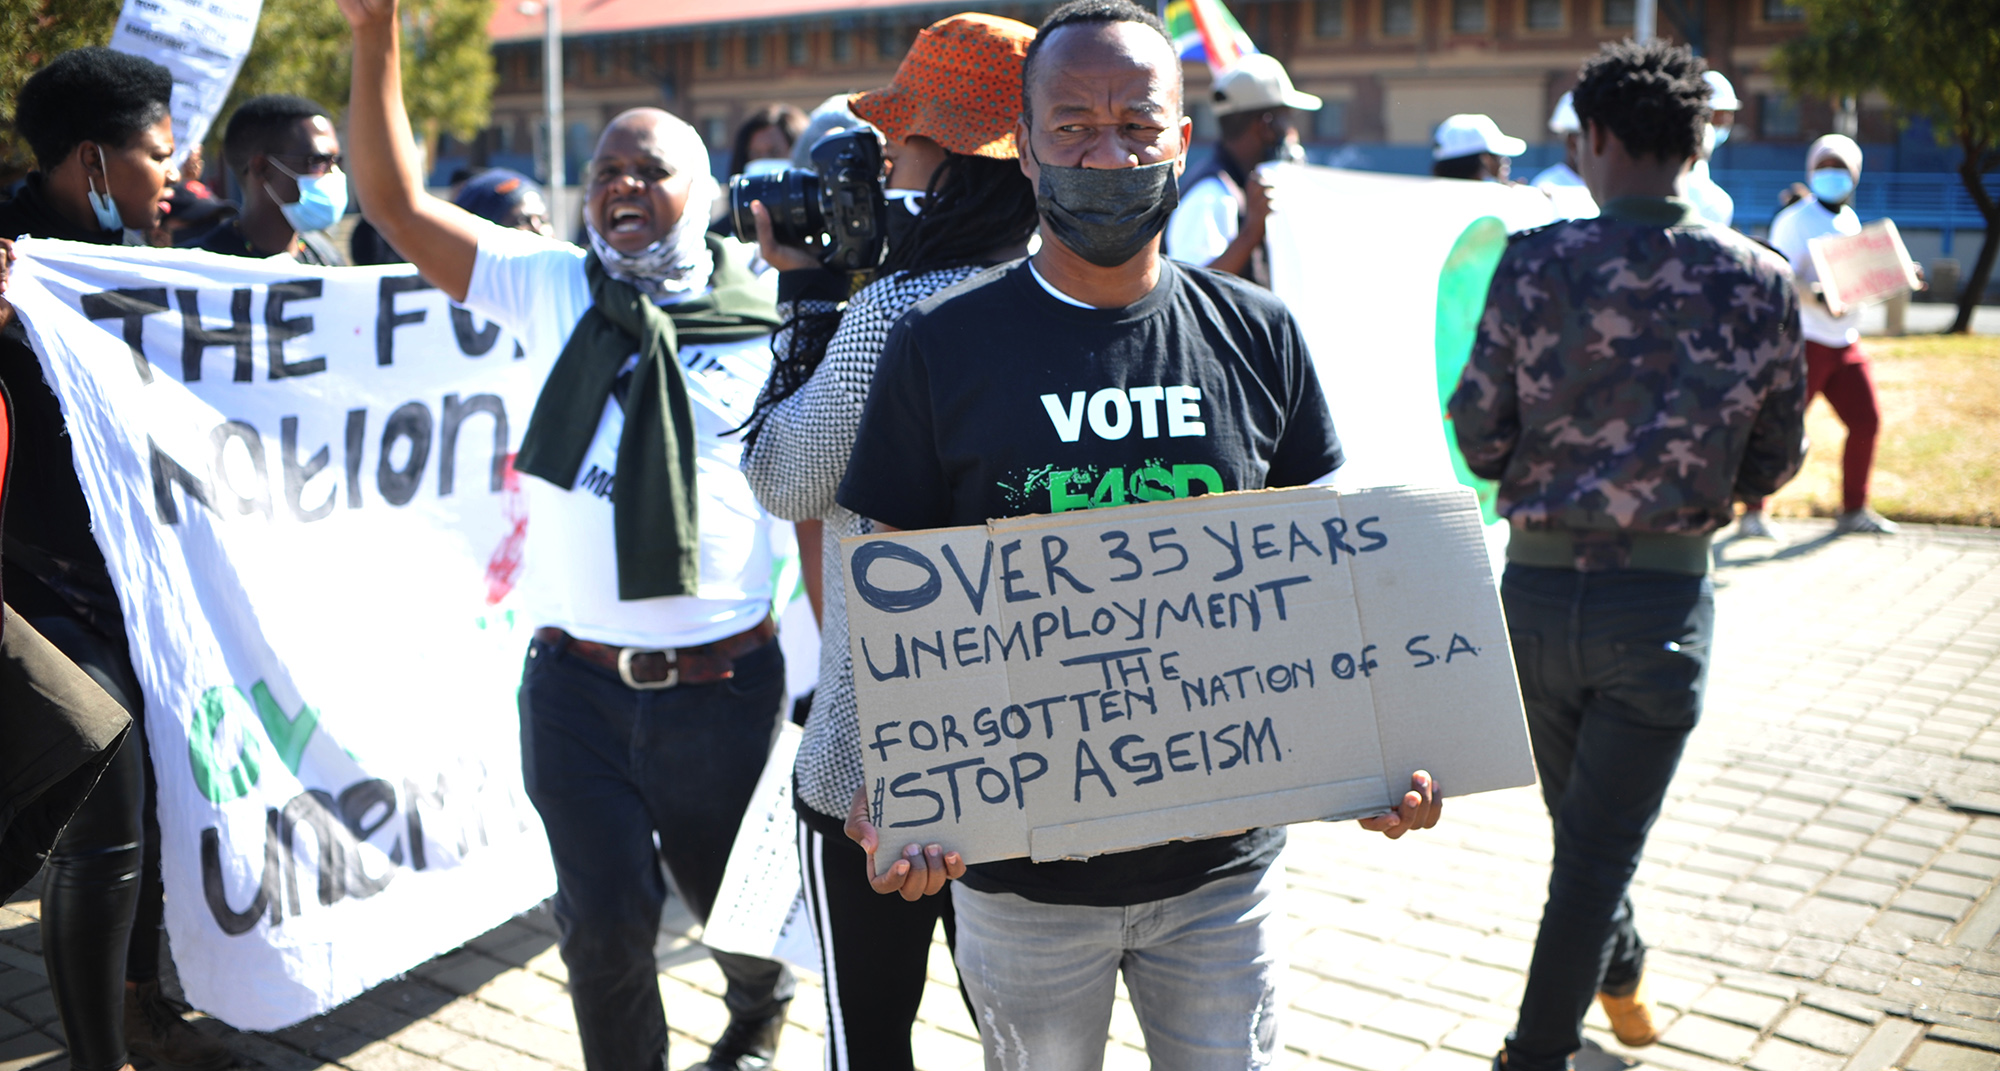 THE FO
NATION
UNEMP
VOTE
F4SD
OVER 35 YEARS
UNEMPLOYMENT
THE
FORGOTTEN NATION OF S.A.
#STOP AGEISM.